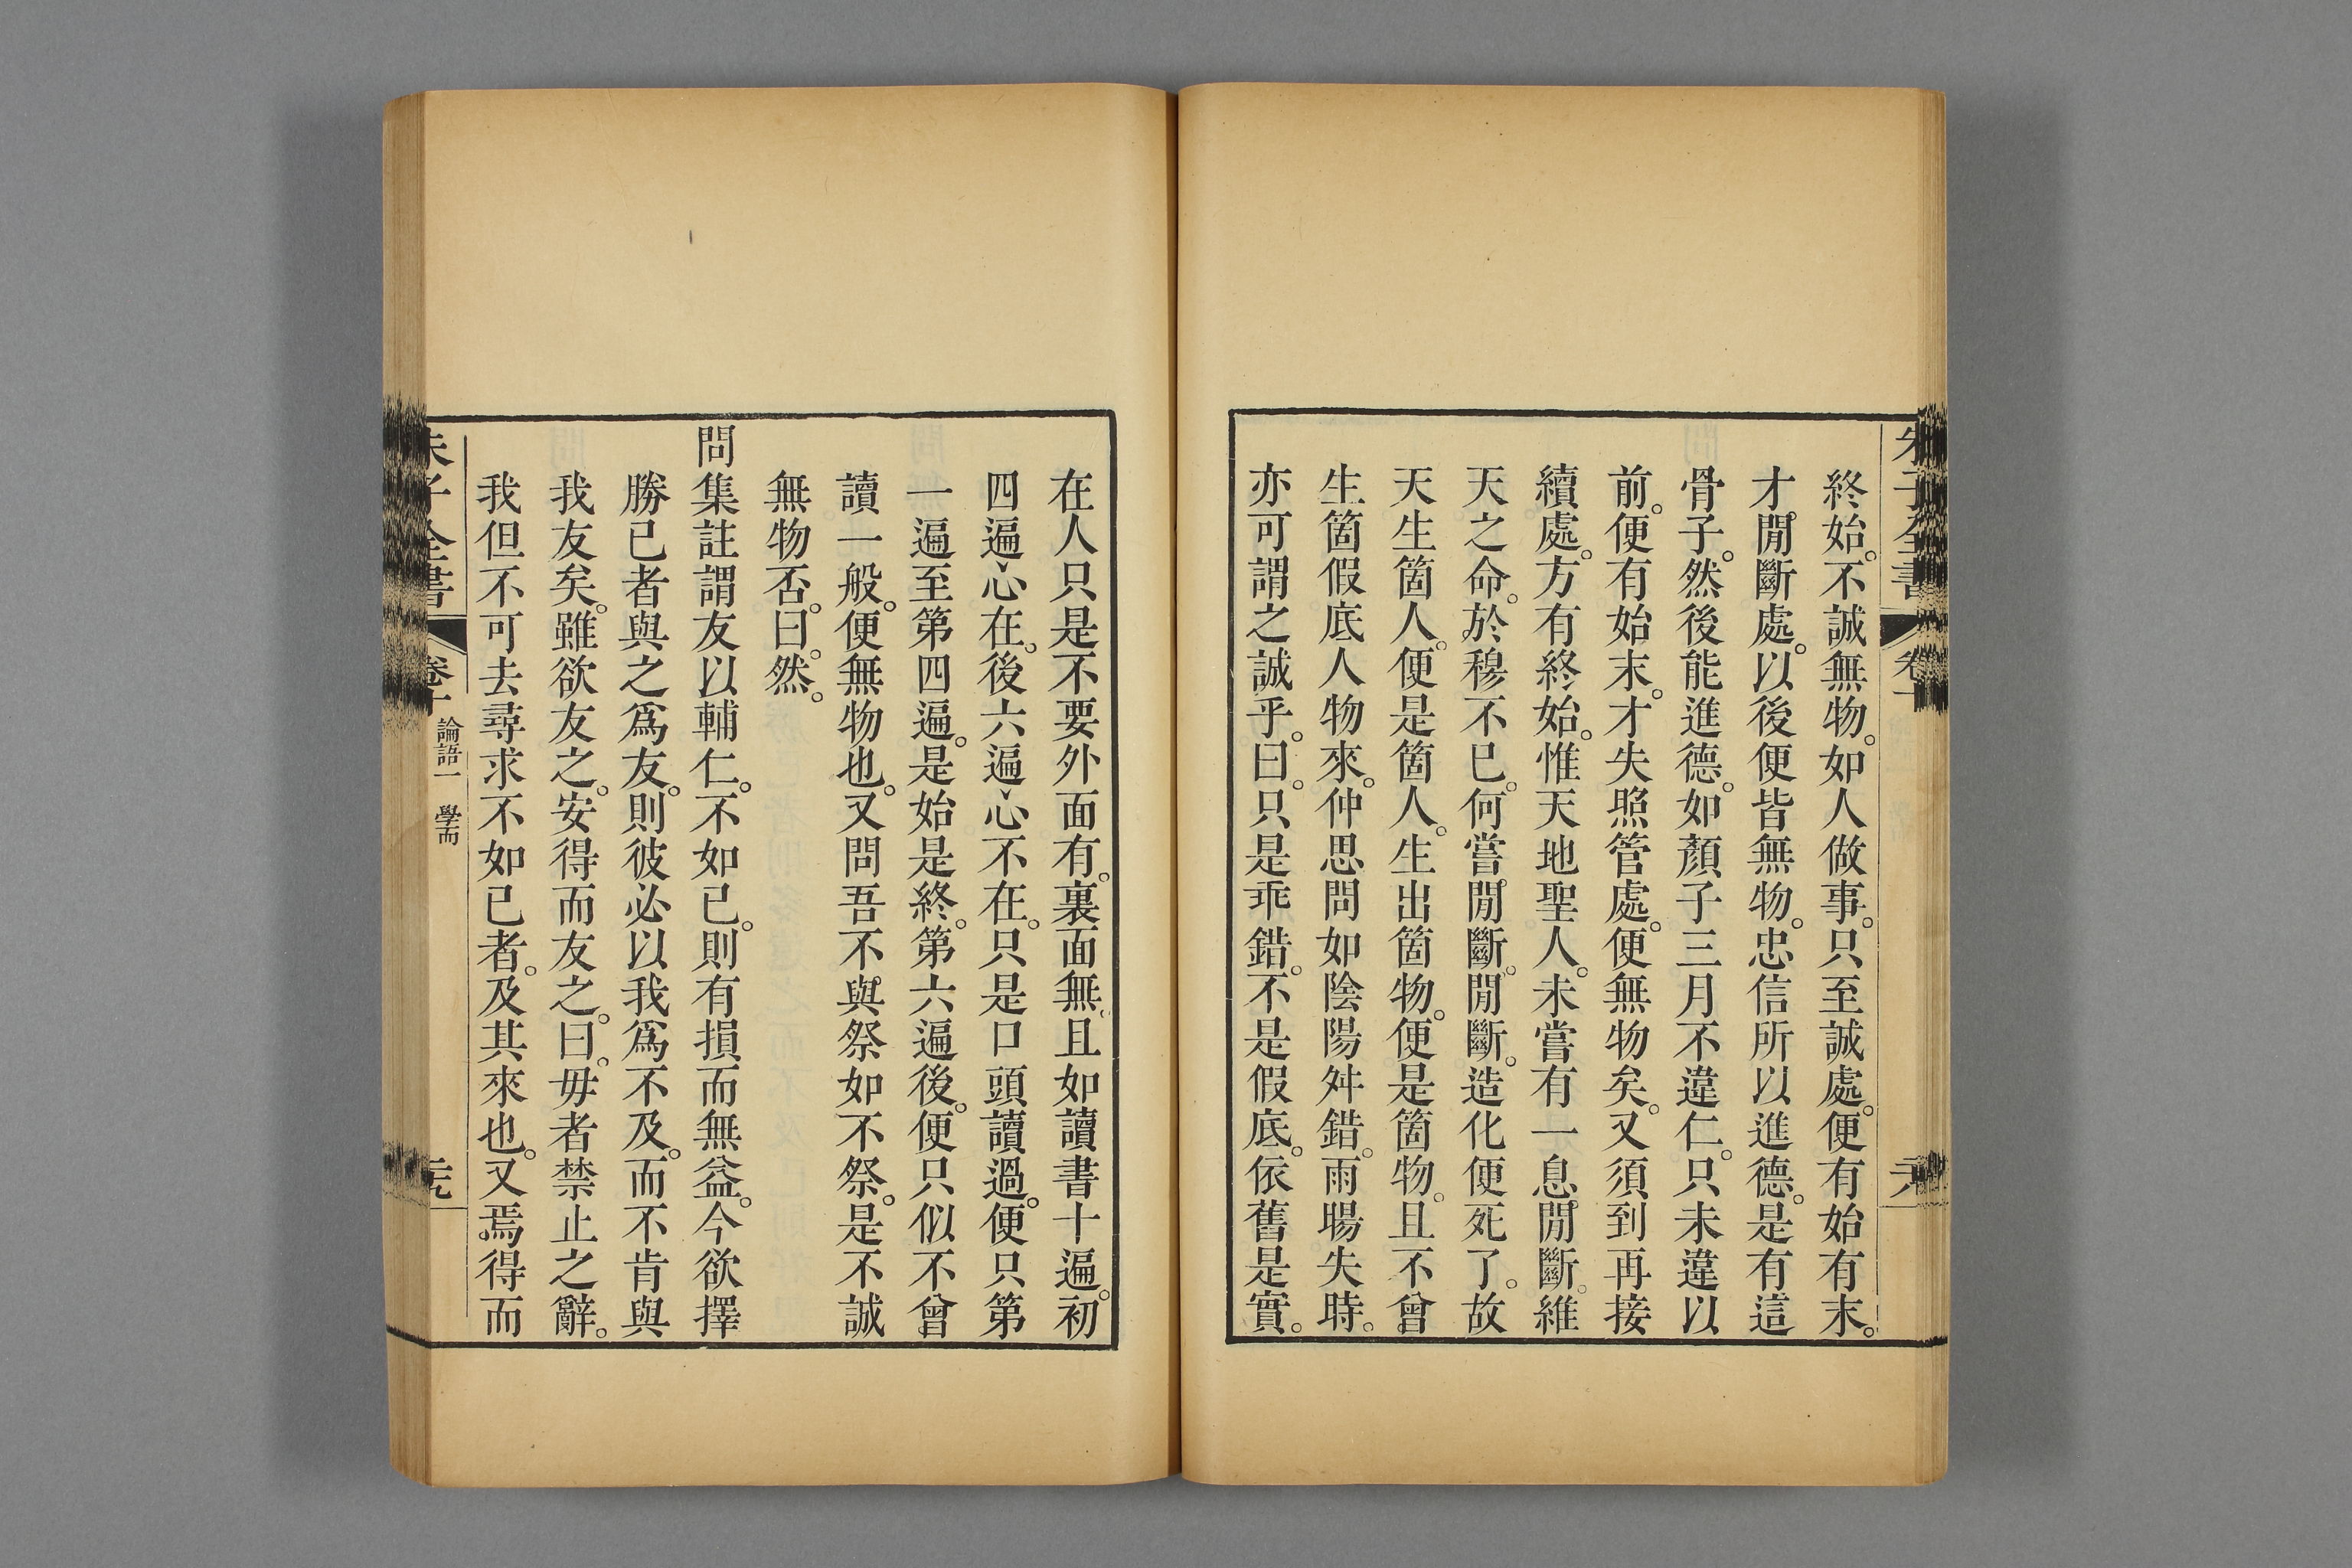 終始。不誠無物。如人做事。只至誠處。便有始有末。
才閒斷處。以後便皆無物。忠信所以進德。是有這
骨子。然後能進德。如顏子三月不違仁。只未違以
前。便有始末。才失照管處。便無物矣。又須到再接
續處。方有終始。惟天地聖人。未嘗有一息閒斷。維
天之命。於穆不已。何嘗閒斷。閒斷。造化便死了。故
天生箇人。便是箇人。生出箇物。便是箇物。且不曾
生箇假底人物來。仲思問如陰陽舛錯。雨暘失時。
亦可謂之誠乎。曰。只是乖錯。不是假底。依舊是實。
在人只是不要外面有。裏面無。且如讀書十遍。初
四遍心在。後六遍心不在。只是口頭讀過。便只第
一遍至第四遍。是始是終。第六遍後。便只似不曾
讀一般。便無物也。又問吾不與祭如不祭。是不誠
無物否。曰。然。
問集註謂友以輔仁。不如己。則有損而無益。今欲擇
勝已者與之爲友。則彼必以我爲不及。而不肯與
我友矣。雖欲友之。安得而友之。曰。毋者禁止之辭。
我但不可去尋求不如已者。及其來也。又焉得而
朱子全書
卷十
論語一 學而